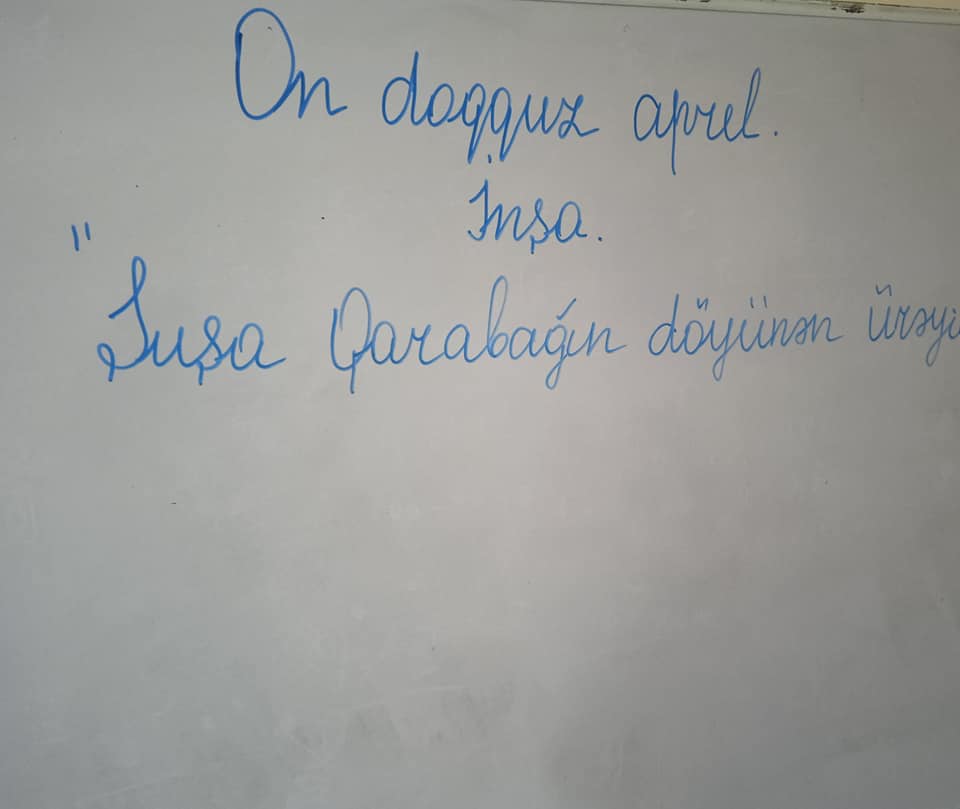 On doqquz aprel.
İnşa.
"Şuşa Qarabağın döyünən ürəyi